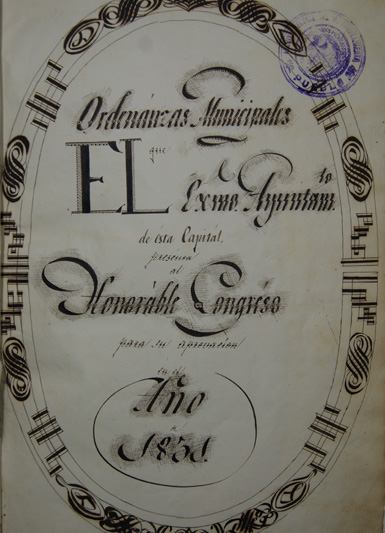 Ordenanzas Municipales
que
EL Exmo. Ayuntam.to
de ésta Capital,
presenta
al
Honorable Congreso
para su aprovacion
en el
Año
de
1851.
PUEBLA